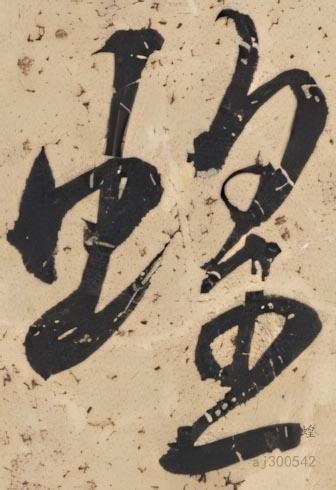 蝗
蝗
aj300542